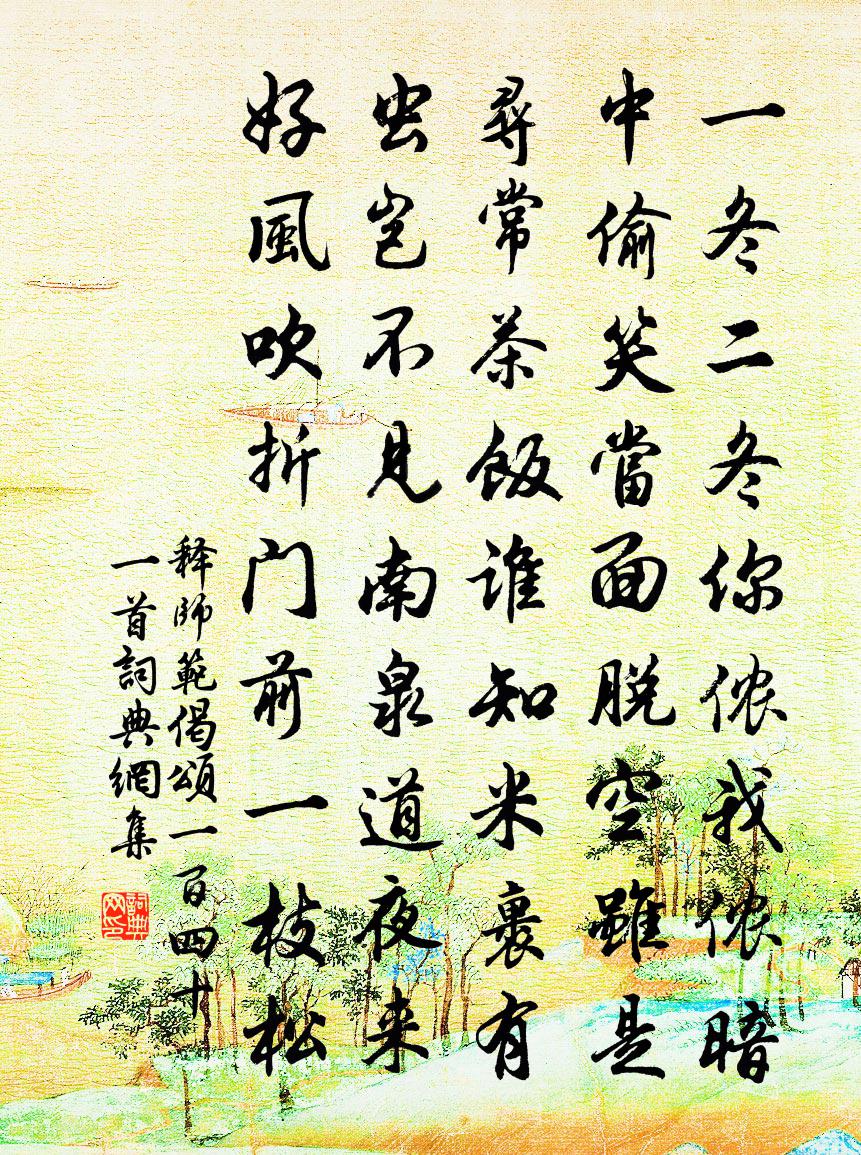 一冬二冬你侬我侬暗
中偷笑當面脱空雖是
尋常茶飯誰知米裏有
虫岂不見南泉道夜来
好風吹折門前一枝松
释師範偈頌一百四十
一首詞典網集
詞典网印